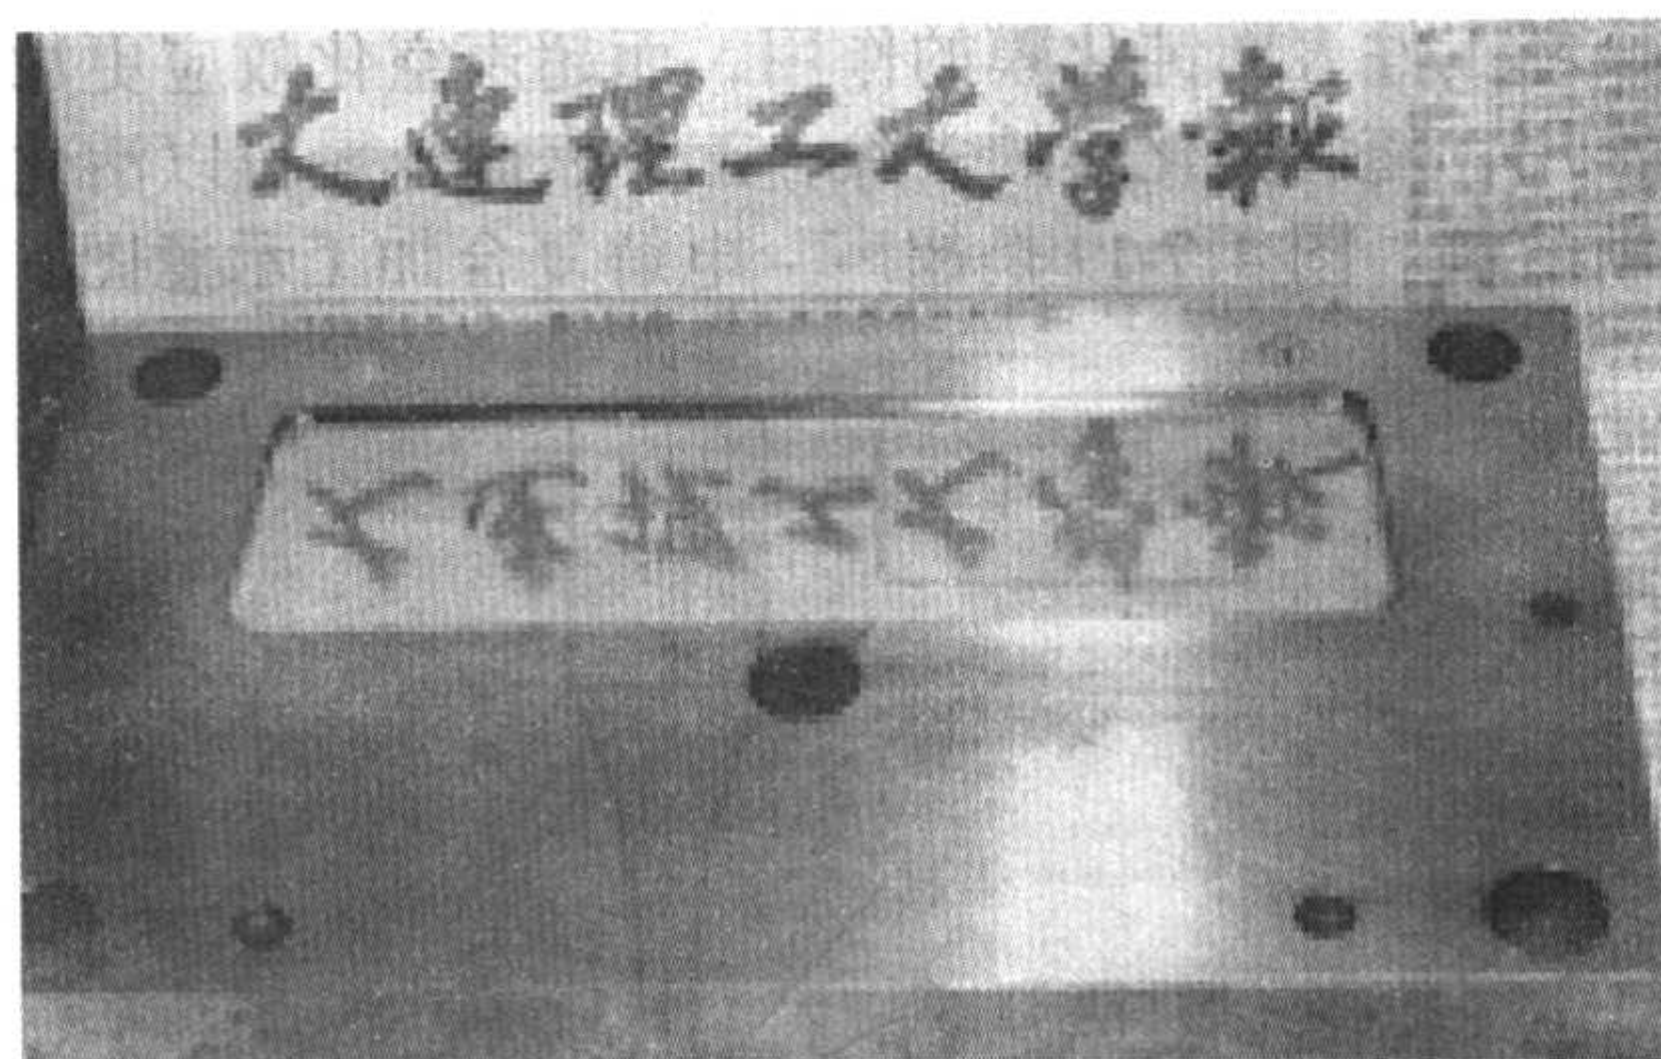 大连理工大学报